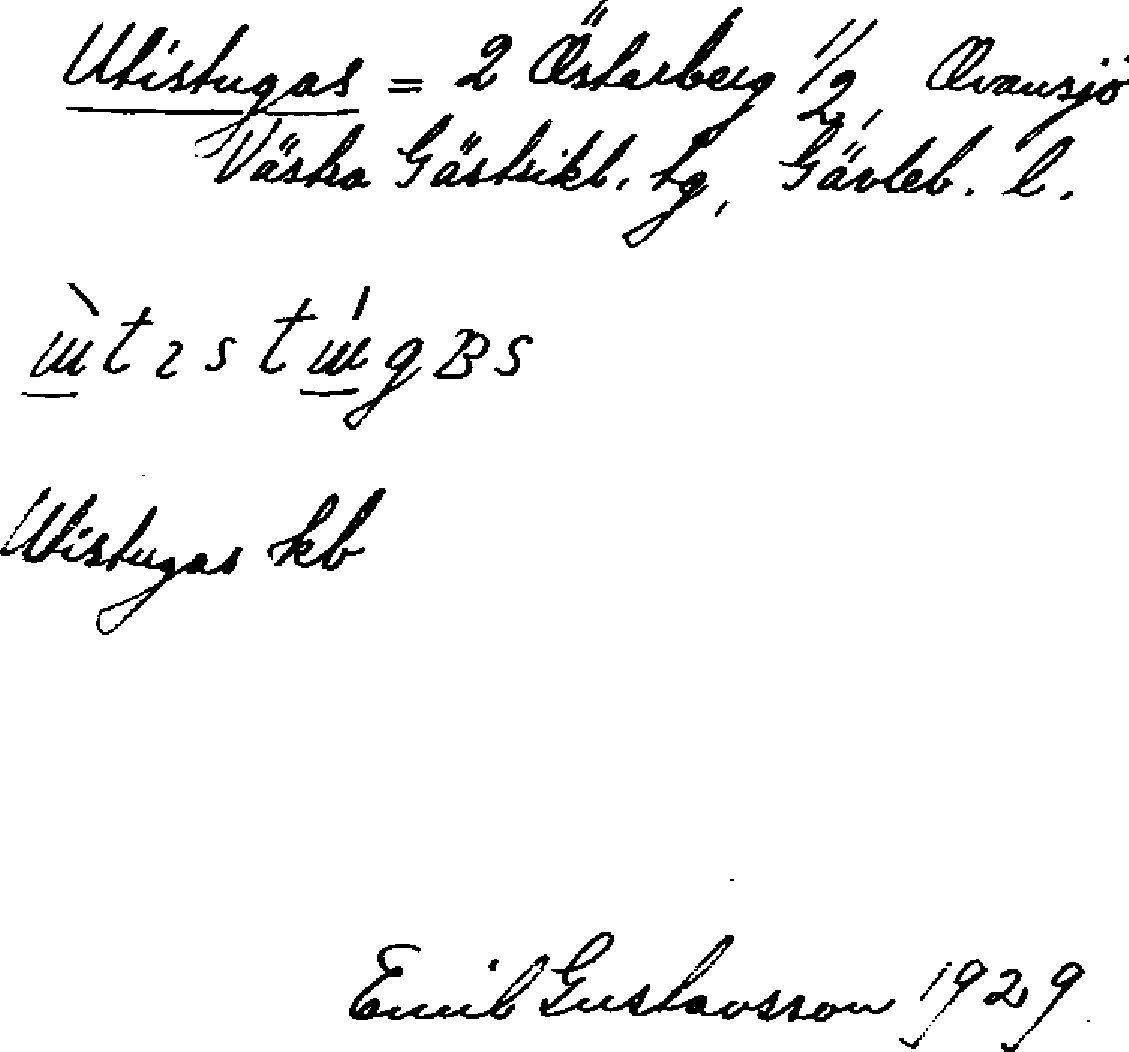 Utistugas = 2 Österberg 1/2, Ovansjö
Västra Gästrikl. tg, Gävleb. l.
Utistugas kb
Emil Gustavsson 1929